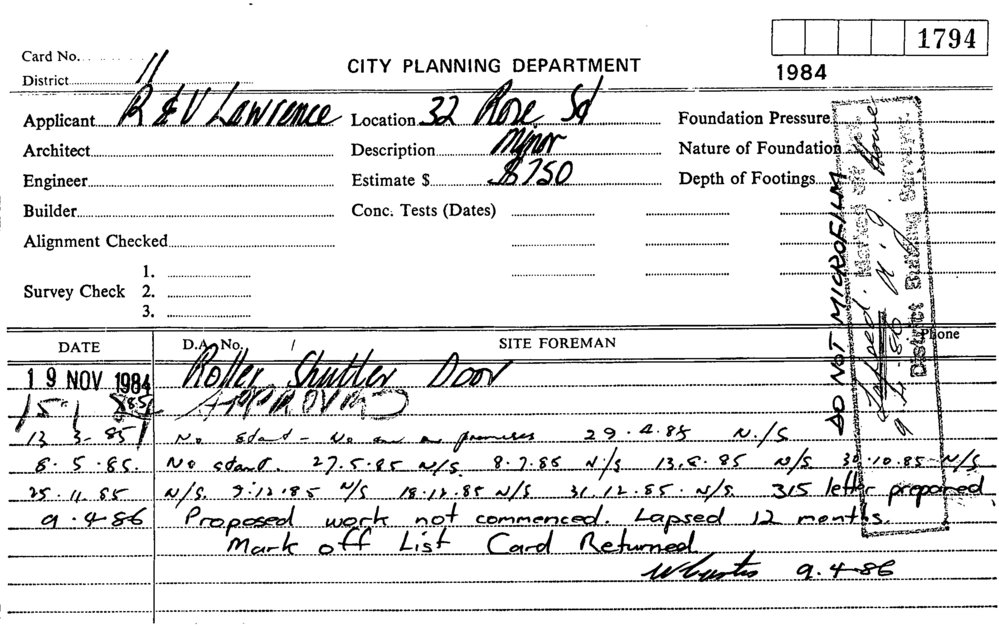 1794
Card No.
District 11
CITY PLANNING DEPARTMENT
1984
Applicant R & V Lawrence Location 32 Rose Sd Foundation Pressure
Architect Description Minor Nature of Foundation
Engineer Estimate $ $750 Depth of Footings
Builder Conc. Tests (Dates)
Alignment Checked
1.
Survey Check 2.
3.
DO NOT MICROFILM
Marked off
Lapsed.
9-4-86
District Building Surveyor.
DATE D.A. No. / SITE FOREMAN Phone
19 NOV 1984 Roller Shutter Door
15 1 85 APPROVED
13 3-85 No start - No one on premises 29.4.85 N/S
8.5.85. No start. 27.5.85 N/S 8.7.85 N/S 13.8.85 N/S 30.10.85 N/S
25.11.85 N/S. 9.12.85 N/S 18.12.85 N/S 31.12.85. N/S. 315 letter prepared
9.4.86 Proposed work not commenced. Lapsed 12 months.
Mark off List Card Returned
9.4-86